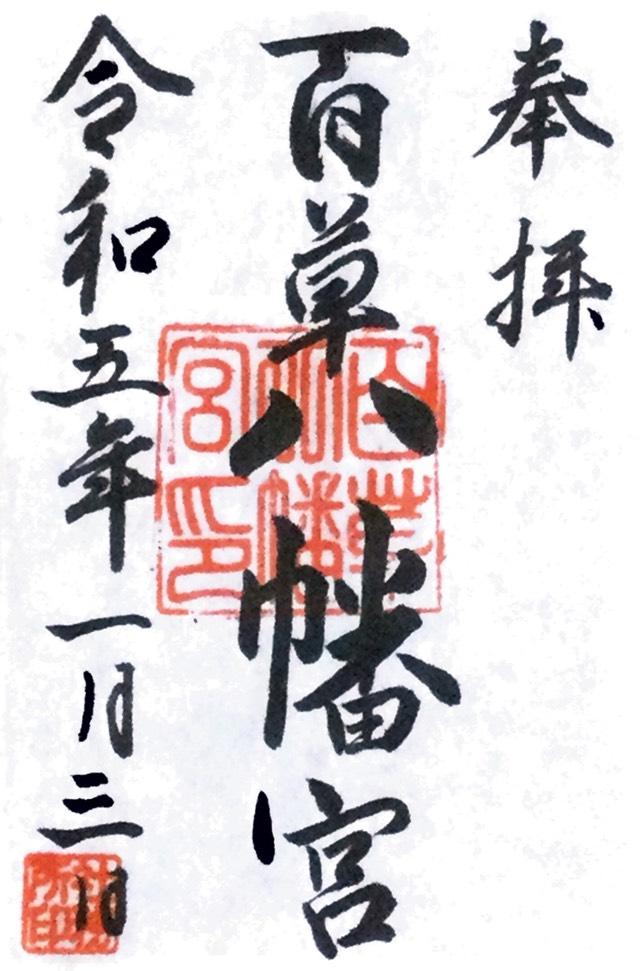 奉拝
百草八幡宮
百草八幡宮印
令和五年一月三日